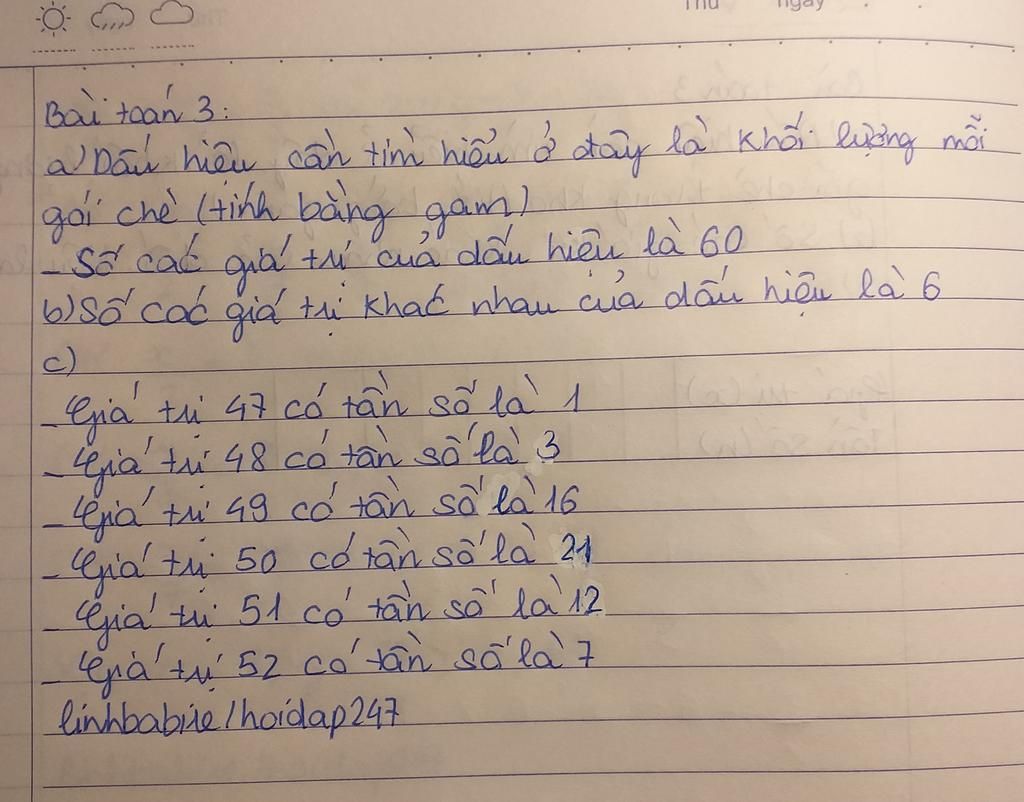 Thứ ngày
Bài toán 3:
a) Dấu hiệu cần tìm hiểu ở đây là khối lượng mỗi
gói chè (tính bằng gam)
- Số các giá trị của dấu hiệu là 60
b) Số các giá trị khác nhau của dấu hiệu là 6
c)
- Giá trị 47 có tần số là 1
- Giá trị 48 có tần số là 3
- Giá trị 49 có tần số là 16
- Giá trị 50 có tần số là 21
- Giá trị 51 có tần số là 12
- Giá trị 52 có tần số là 7
linhbabie/hoidap247